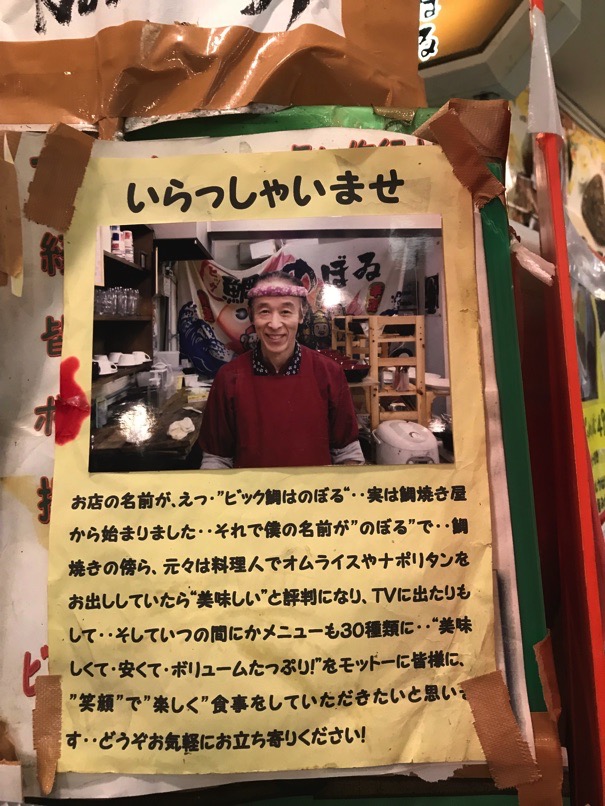 いらっしゃいませ
のぼる
お店の名前が、えっ・”ビック鯛はのぼる“・・実は鯛焼き屋
から始まりました・・それで僕の名前が”のぼる”で・・鯛
焼きの傍ら、元々は料理人でオムライスやナポリタンを
お出ししていたら“美味しい”と評判になり、TVに出たりも
して・・そしていつの間にかメニューも30種類に・・“美味
しくて・安くて・ボリュームたっぷり!”をモットーに皆様に、
”笑顔”で”楽しく”食事をしていただきたいと思いま
す・・どうぞお気軽にお立ち寄りください!